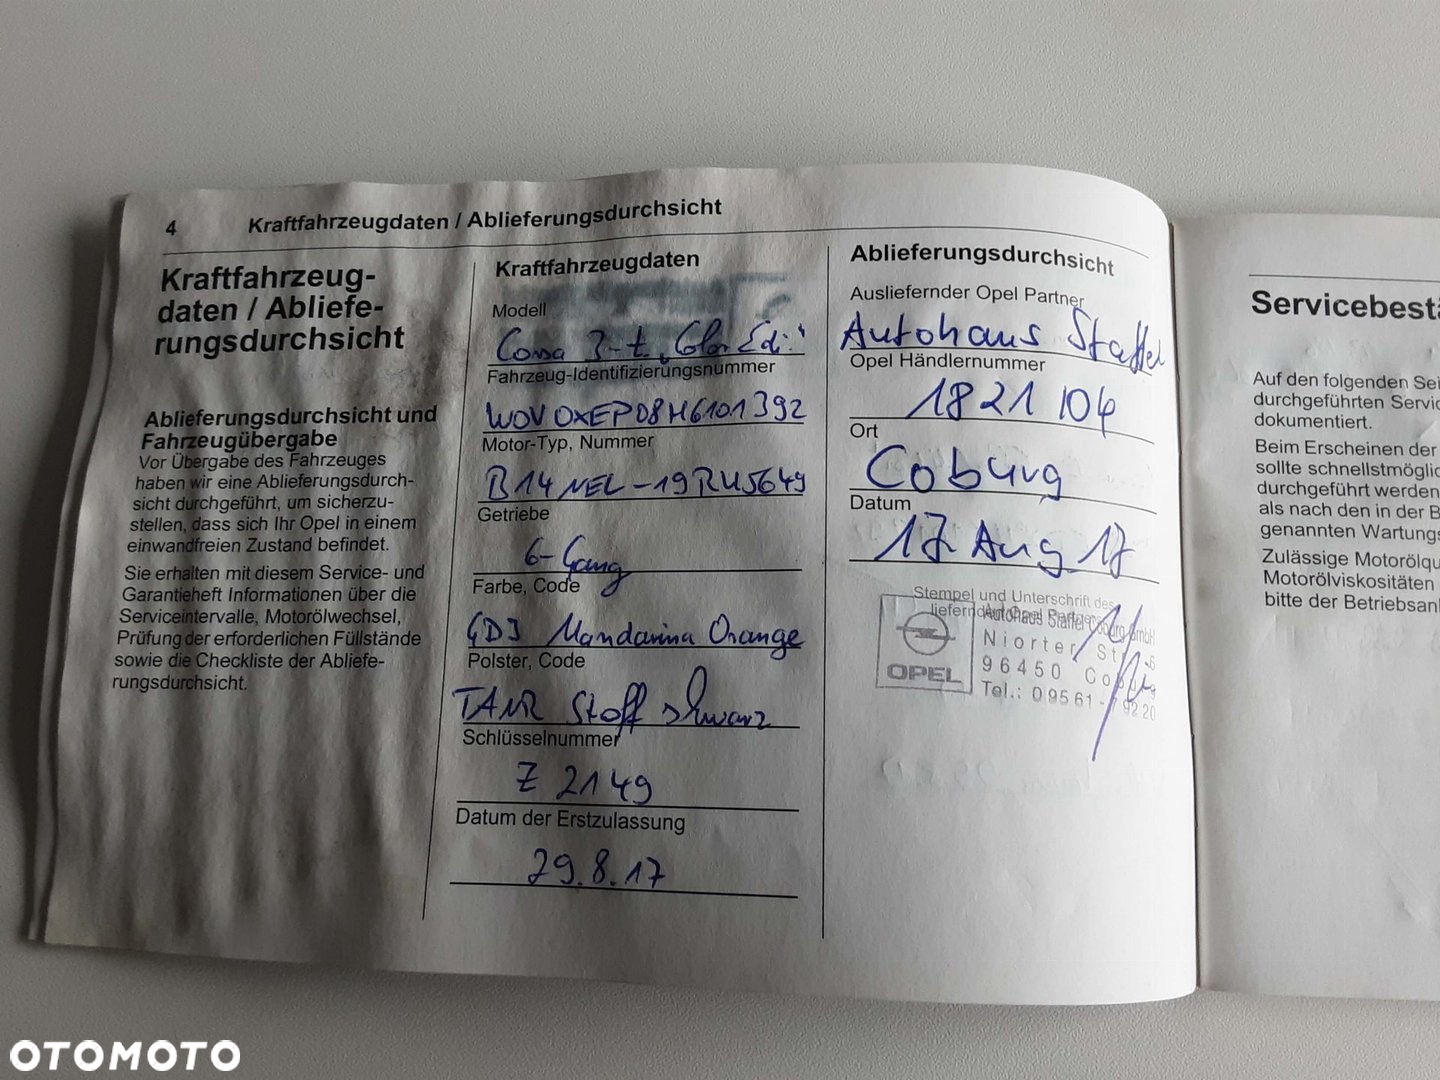 4 Kraftfahrzeugdaten / Ablieferungsdurchsicht
Kraftfahrzeug-
daten / Abliefe-
rungsdurchsicht
Ablieferungsdurchsicht und
Fahrzeugübergabe
Vor Übergabe des Fahrzeuges
haben wir eine Ablieferungsdurch-
sicht durchgeführt, um sicherzu-
stellen, dass sich Ihr Opel in einem
einwandfreien Zustand befindet.
Sie erhalten mit diesem Service- und
Garantieheft Informationen über die
Serviceintervalle, Motorölwechsel,
Prüfung der erforderlichen Füllstände
sowie die Checkliste der Abliefe-
rungsdurchsicht.
Kraftfahrzeugdaten
Modell
Corsa 3-t. „Color Edi."
Fahrzeug-Identifizierungsnummer
W0V0XEP08H6101392
Motor-Typ, Nummer
B14NEL-19RU5649
Getriebe
6-Gang
Farbe, Code
Mandarina Orange
Polster, Code
TAMR Stoff schwarz
Schlüsselnummer
Z 2149
Datum der Erstzulassung
29.8.17
Ablieferungsdurchsicht
Ausliefernder Opel Partner
Autohaus Staffel
Opel Händlernummer
1821 104
Ort
Coburg
Datum
17 Aug 17
Stempel und Unterschrift des
liefernden Opel Partners
Autohaus Staffel Coburg GmbH
OPEL
Niorter Str.
96450 Coburg
Tel.: 09561-79220
Servicebestä
Auf den folgenden Sei
durchgeführten Servic
dokumentiert.
Beim Erscheinen der
sollte schnellstmöglic
durchgeführt werden
als nach den in der B
genannten Wartungs
Zulässige Motorölqu
Motorölviskositäten
bitte der Betriebsan
OTOMOTO